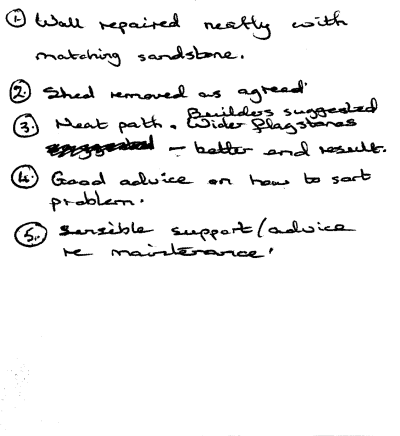 1. Wall repaired neatly with
matching sandstone.
2. Shed removed as agreed.
3. Neat path. Builders suggested
Wider flagstones
– better end result.
4. Good advice on how to sort
problem.
5. Sensible support/advice
re maintenance.